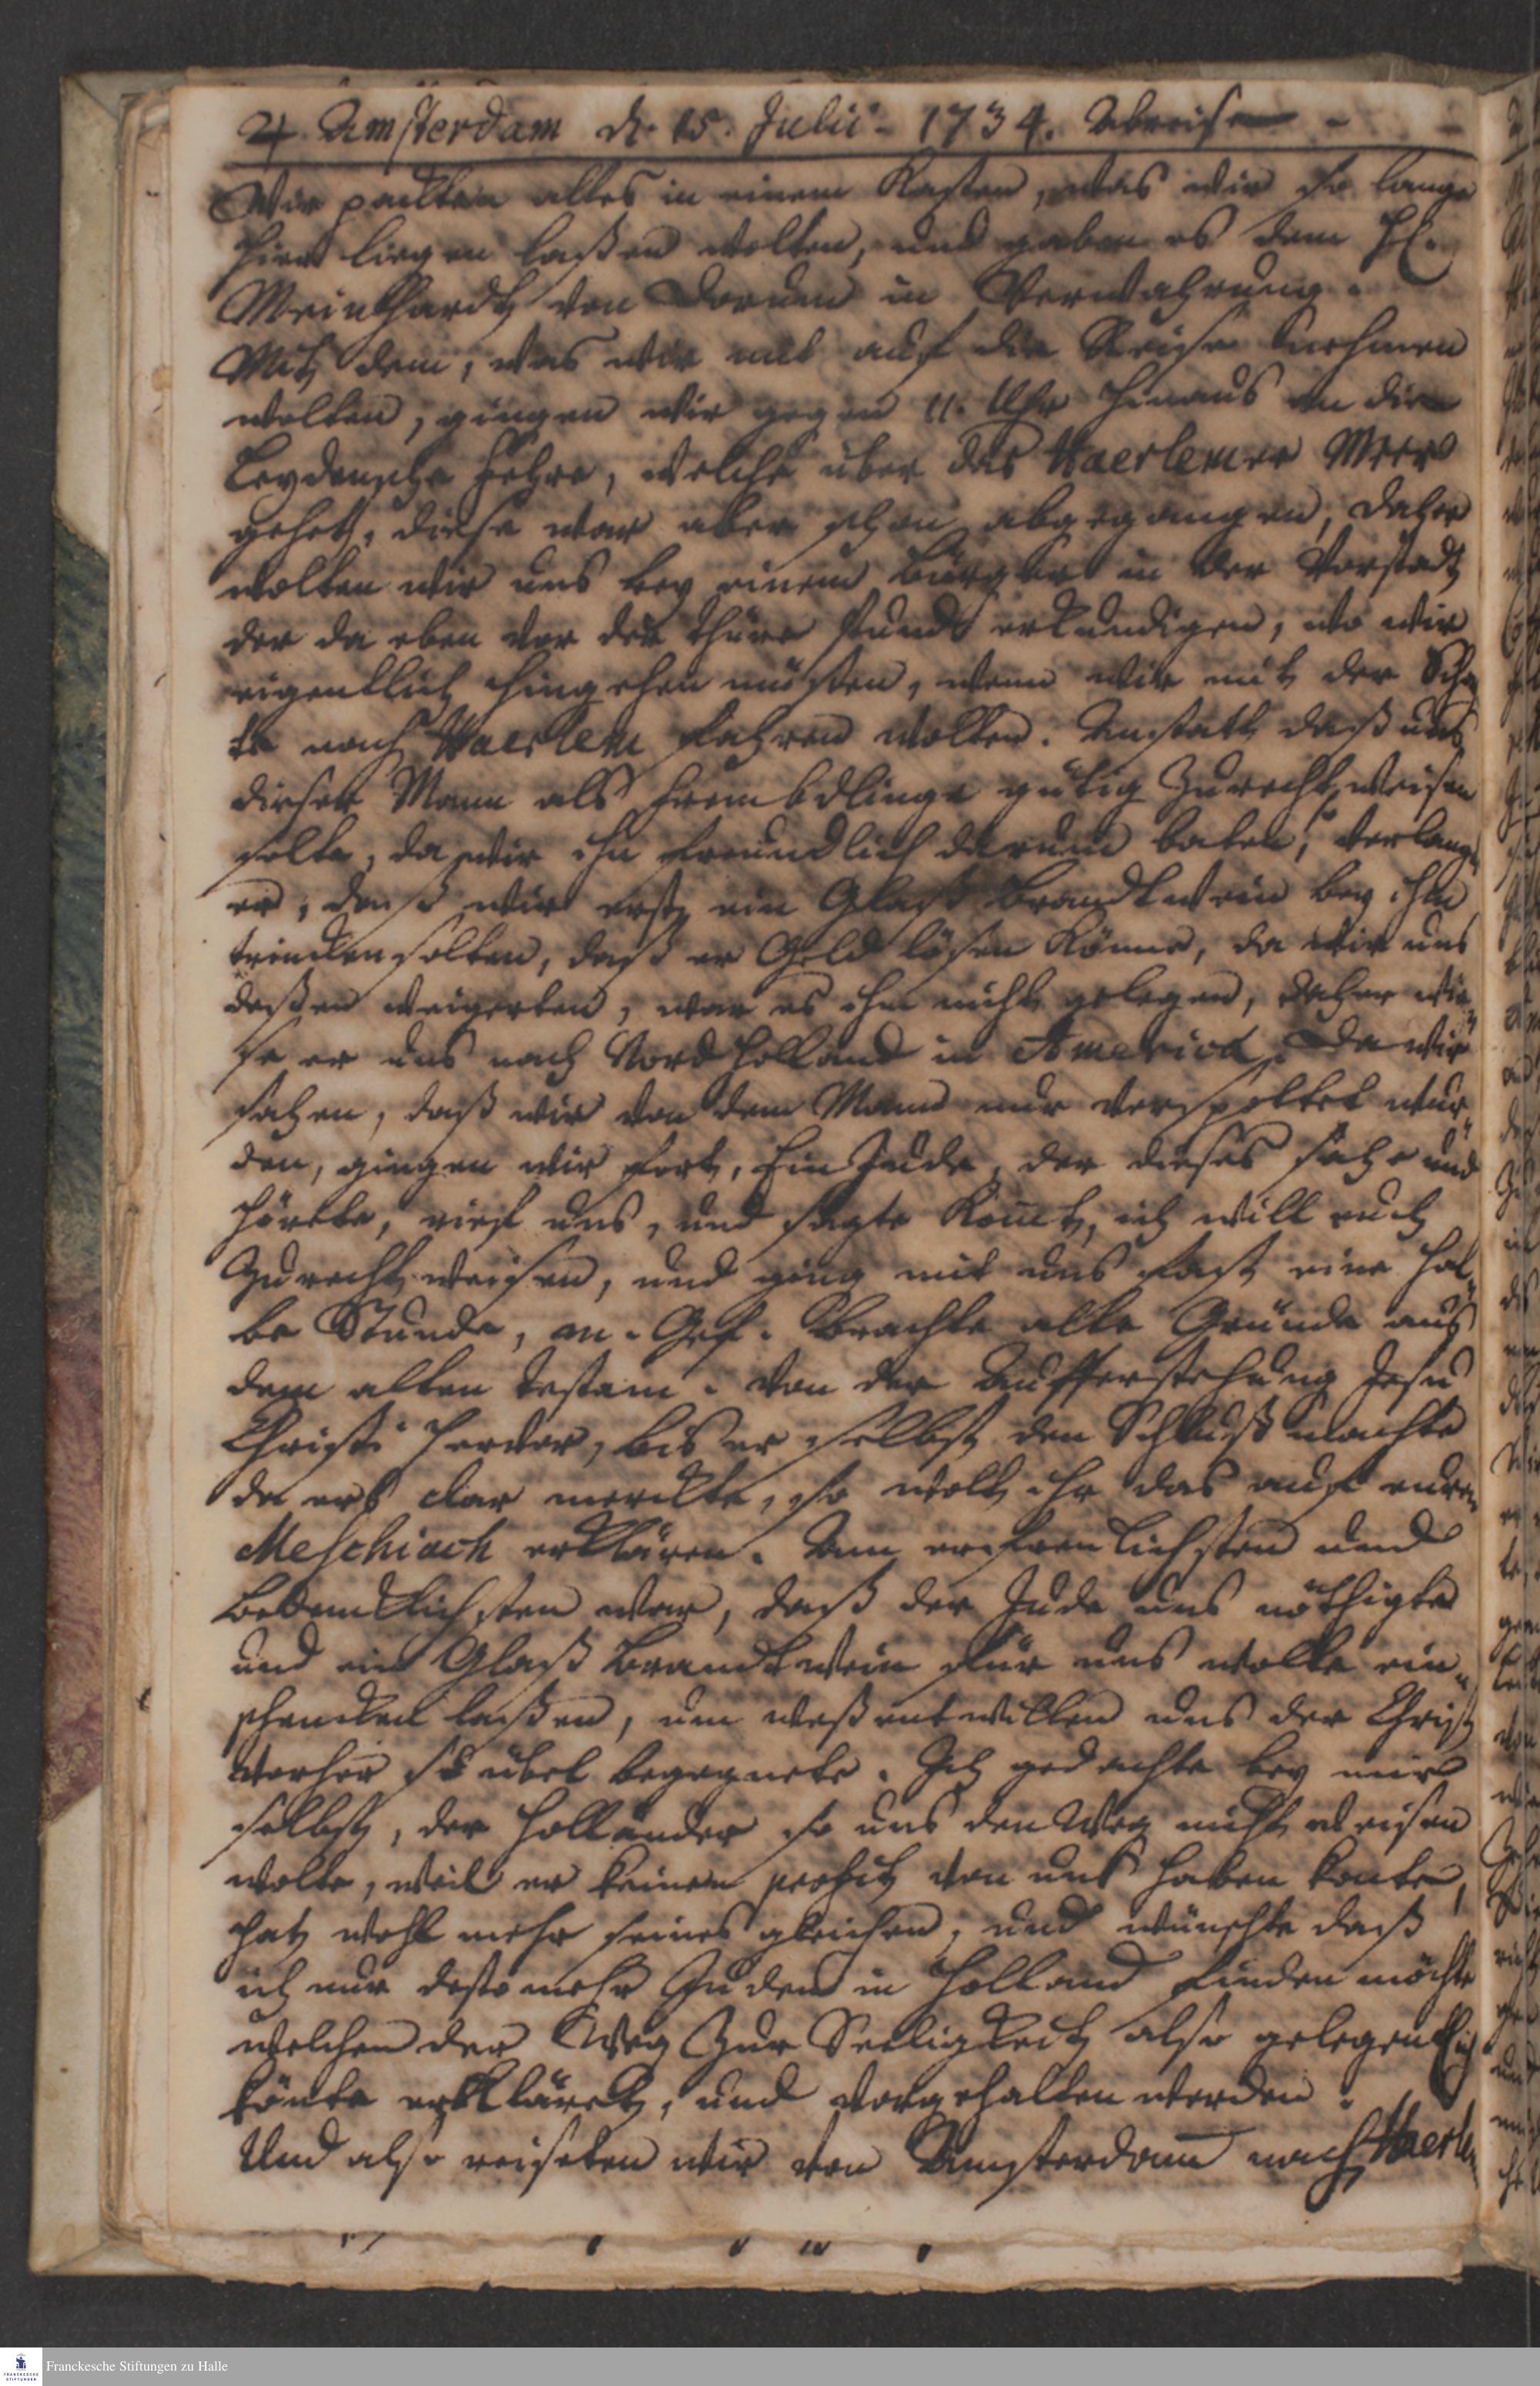 ♃ Amsterdam d. 15. Julii - 1734. Abreise - -
Wir packten alles in einem Kasten, was wir so lange
hier liegen laßen wolten, und gaben es dem H.
Meinhardt von Dornum in Verwahrung.
Mit dem, was wir mit auf die Reise nehmen
wolten, gingen wir gegen 11. Uhr hinaus an die
Leydensche Fehre, welche über das Haerlemer Meer
gehet, diese war aber schon abgegangen, daher
wolten wir uns bey einem Bürger in der Vorstadt
der da eben vor der thüre stunde erkundigen, wo wir
eigentlich hingehen müsten, wenn wir mit der Schu
te nach Haerlem fahren wolten. Anstatt daß uns
dieser Mann als Frembdlinge gütig zurecht weisen
solte, da wir ihn freundlich darum baten, verlangte
er, daß wir erst ein Glaß Brandtwein bey ihm
trincken solten, daß er Geld lösen könne, da wir uns
deßen weigerten, war es ihm nicht gelegen, daher wie
se er uns nach Nord Holland in America. Da wir
sahen, daß wir von dem Mann nur verspottet wur„
den, gingen wir fort, Ein Jude, der dieses sahe und
hörete, rief uns, und sagte komt, ich will euch
zurecht weisen, und ging mit uns fast eine hal„
be Stunde, m. Gef. brachte alle Gründe aus
dem alten testam. von der Aufferstehung Jesu
Christi hervor, bis er selbst den Schluß machte
da ers clar merckte, so wolt ihr das auf euren
Meschiach erklären. Am erfreulichsten und
bedencklichsten war, daß der Jude uns nöthigte
und ein Glaß Brandtwein für uns wolte ein„
schencken laßen, um weßentwillen uns der Christ
vorher so übel begegnete. Ich gedachte bey mir
selbst, der Holländer so uns den Weg nicht weisen
wolte, weil er keinen profit von uns haben konte,
hat wohl mehr seines gleichen, und wünschte daß
ich nur desto mehr Juden in Holland finden möchte
welchen der Weg zur Seeligkeit also gelegentlich
könte erkläret, und vorgehalten werden.
Und also reiseten wir von Amsterdam nach Haerlem
Franckesche Stiftungen zu Halle